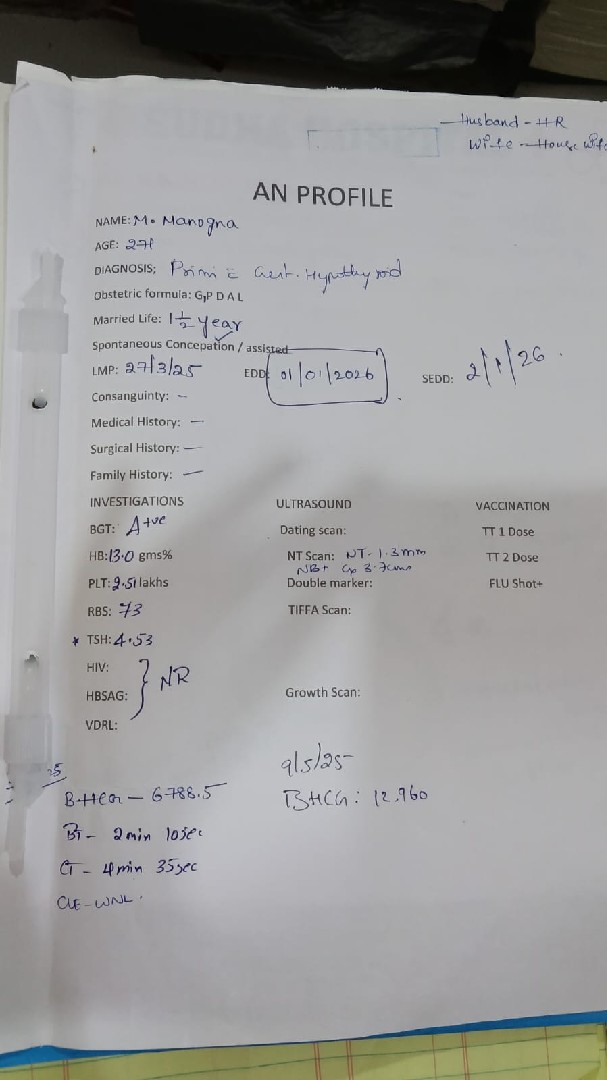 Husband - HR
Wife - House wife
AN PROFILE
NAME: M. Manogna
AGE: 27
DIAGNOSIS: Primi c Gest. Hypothyroid
Obstetric formula: G₁P D A L
Married Life: 1 1/2 year
Spontaneous Concepation / assisted
LMP: 27/3/25 EDD: 01/01/2026 SEDD: 2/1/26
Consanguinty: -
Medical History: -
Surgical History: -
Family History: -
INVESTIGATIONS ULTRASOUND VACCINATION
BGT: A+ve Dating scan: TT 1 Dose
HB:13.0 gms% NT Scan: NT- 1.3mm TT 2 Dose
NB+ Cx 3.7cms
PLT: 2.51 lakhs Double marker: FLU Shot+
RBS: 73 TIFFA Scan:
* TSH: 4.53
HIV:
HBSAG: } NR Growth Scan:
VDRL:
9/5/25
B.HCG - 6788.5 BHCG: 12,960
BT - 2 min 10sec
CT - 4 min 35sec
CUE - WNL.